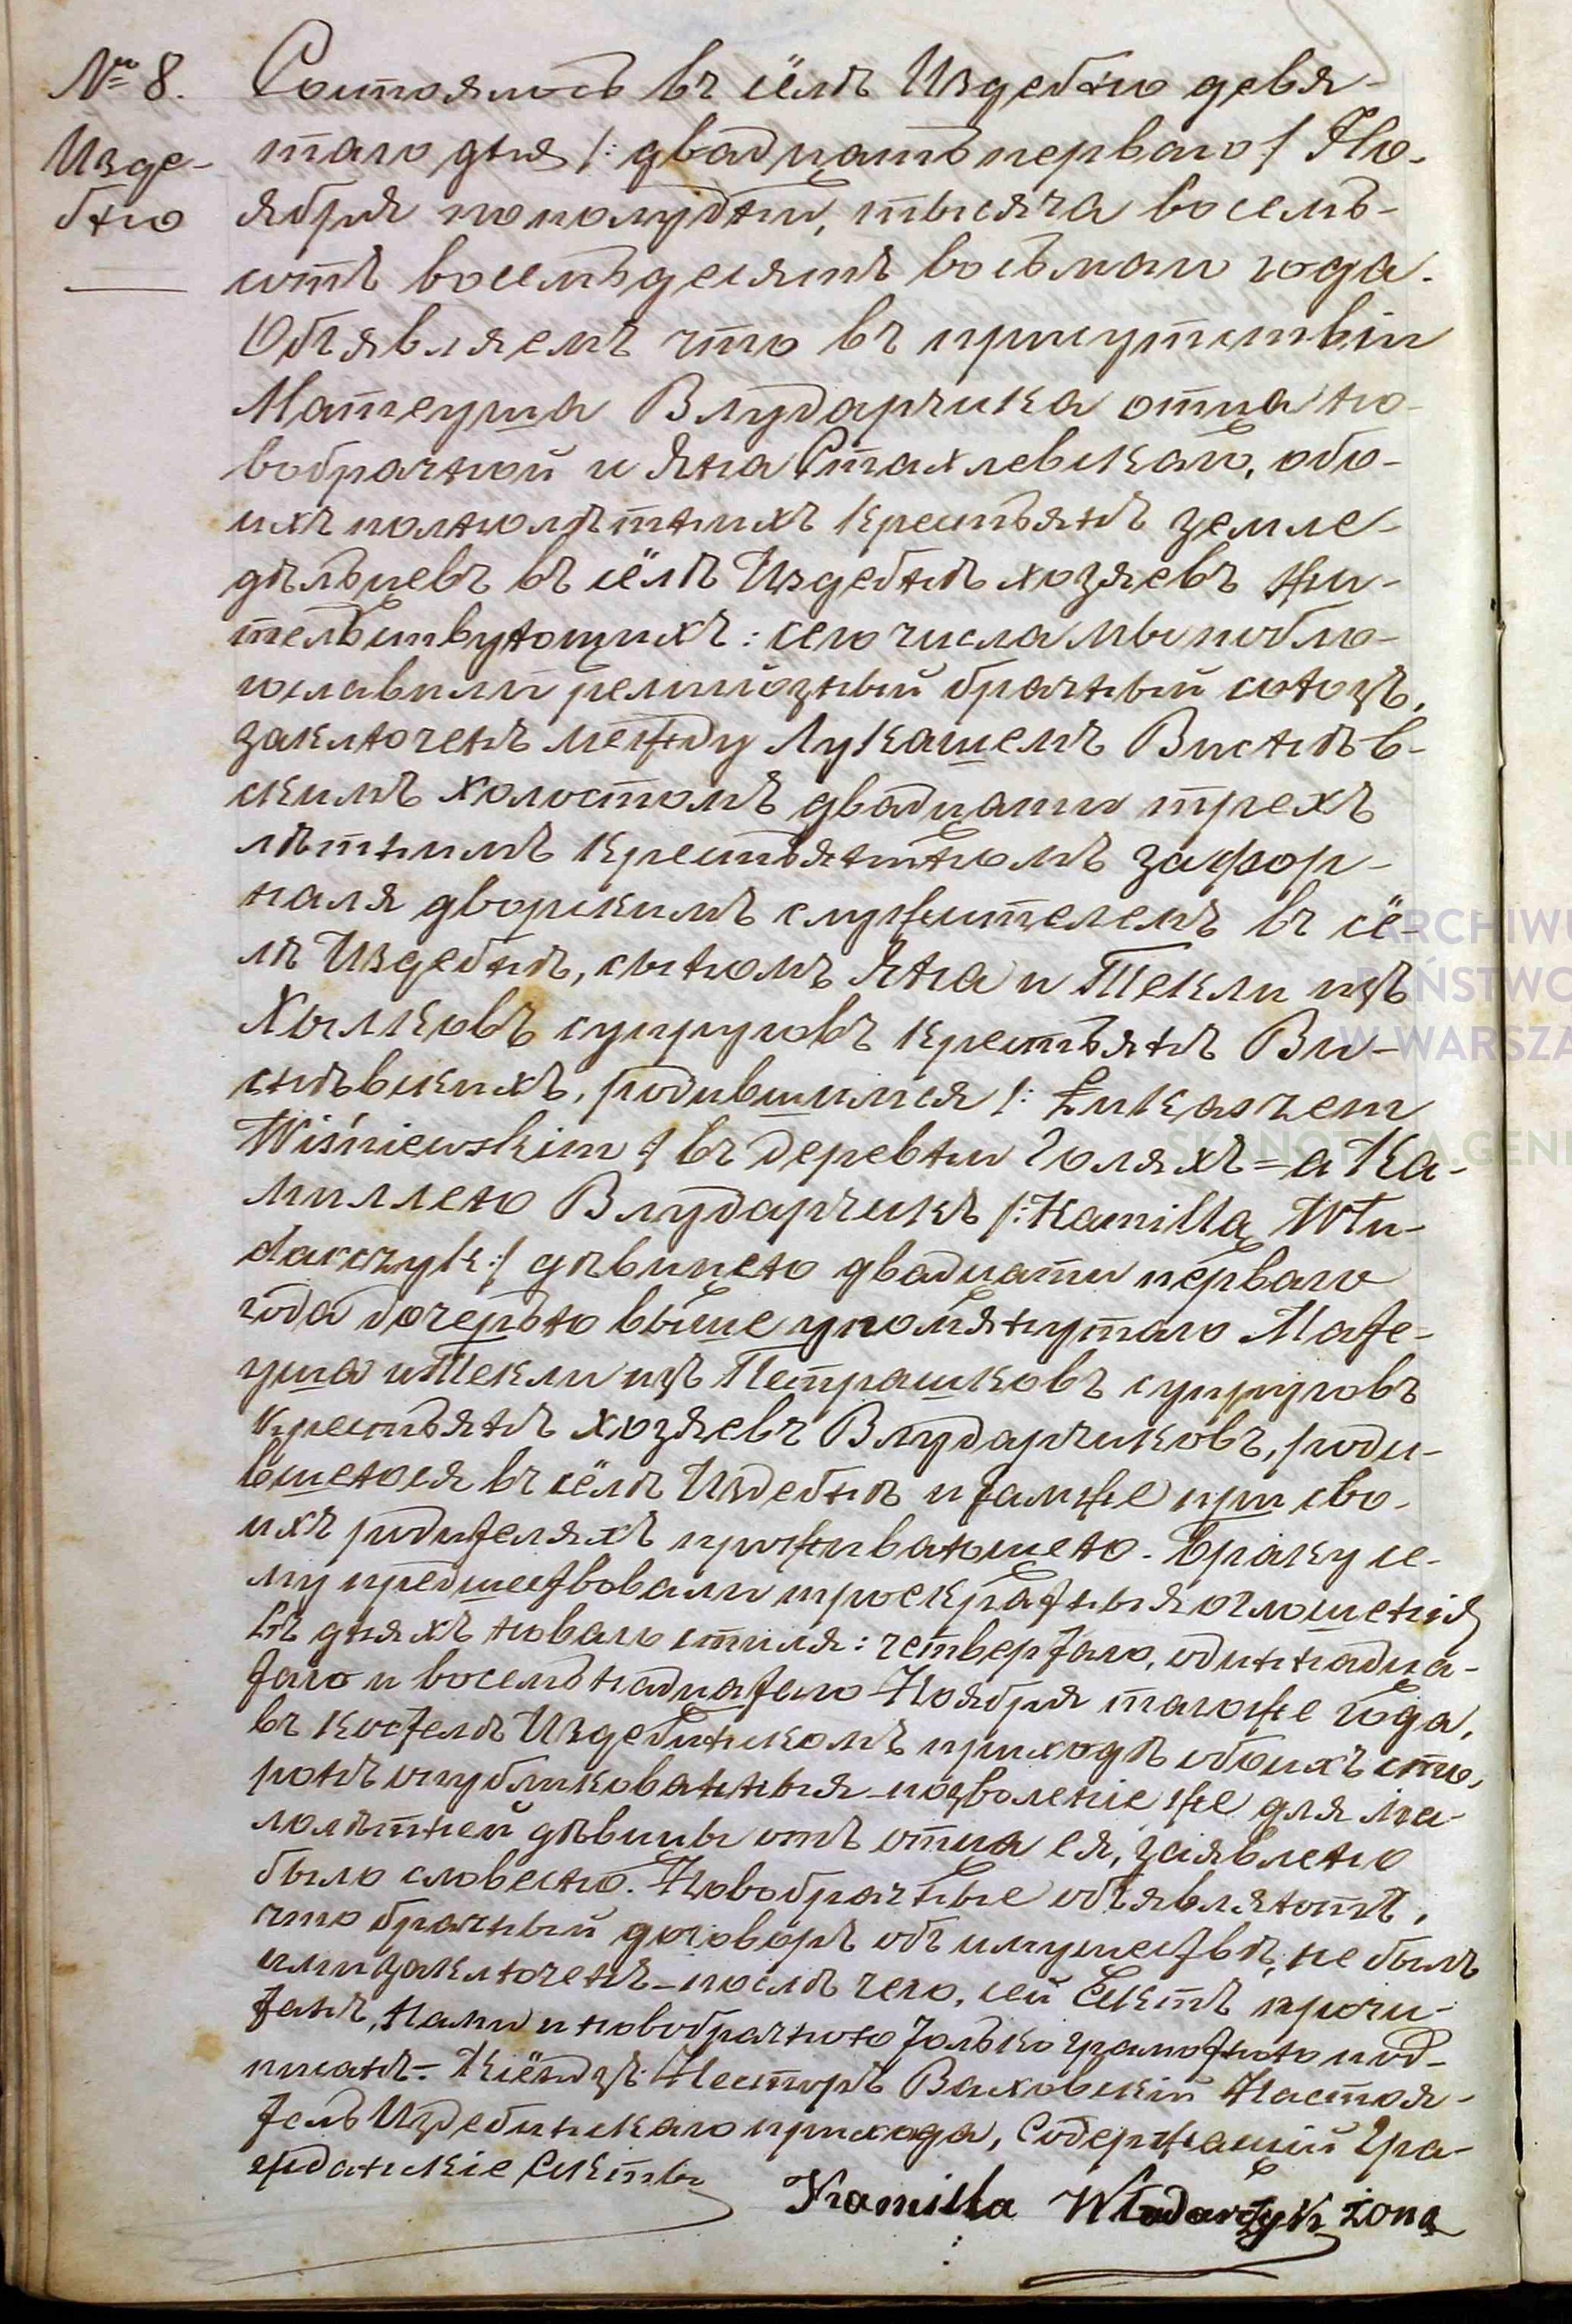 № 8.
Изде-
бно
Состоялось въ сёлѣ Издебно девя-
таго дня /: двадцать перваго / Но-
ября пополудни, тысяча восемь-
сотъ восемьдесятъ восьмаго года.
Объявляемъ что въ присутствіи
Матеуша Влударчика отца но-
вобрачной и Яна Стахлевскаго, обо-
ихъ полнолѣтнихъ крестьянъ земле-
дѣльцевъ въ сёлѣ Издебнѣ хозяевъ жи-
тельствующихъ: сего числа мы побло-
гославили религіозный брачный союзъ,
заключенъ между Лукашемъ Виснѣв-
скимъ холостомъ двадцати трехъ
лѣтнимъ крестьяниномъ за фор-
наля дворскимъ служителемъ въ сё-
лѣ Издебнѣ, сыномъ Яна и Текли изъ
Хылковъ супруговъ крестьянъ Ви-
снѣвскихъ, родившимся /: Łukaszem
Wiśniewskim :/ въ деревни Голяхъ = а Ка-
миллею Влударчикъ /: Kamilla Włu-
darczyk :/ дѣвицею двадцати перваго
года дочерью вышеупомянутаго Мате-
уша и Текли изъ Петрашковъ супруговъ
крестьянъ хозяевъ Влударчиковъ, роди-
вшеюся въ сёлѣ Издебнѣ и тамже при сво-
ихъ родителяхъ проживающею. Браку се-
му предшествовали троекратныя оглошенія
въ дняхъ новаго стиля: четвертаго, одиннадца-
таго и восемьнадцатаго Ноября тагоже года,
въ костелѣ Издебинскомъ приходѣ обоихъ сто-
ронъ опубликованныя - позволеніе же для ма-
лолѣтней дѣвицы отъ отца ея, заявлено
было словесно. Новобрачные объявляютъ,
что брачный договоръ объ имуществѣ, не былъ
ими заключенъ - послѣ чего, сей Эктъ прочи-
танъ, нами и новобрачною только грамотною под-
писанъ. - Ксёндзъ: Несторъ Ваховскій Настоя-
тель Издебинскаго прихода, Содержащій Гра-
жданскіе Экты
Kamilla Włodarczyk żona
ARCHIWU
PAŃSTWO
W WARSZA
SKANOTEKA.GEN